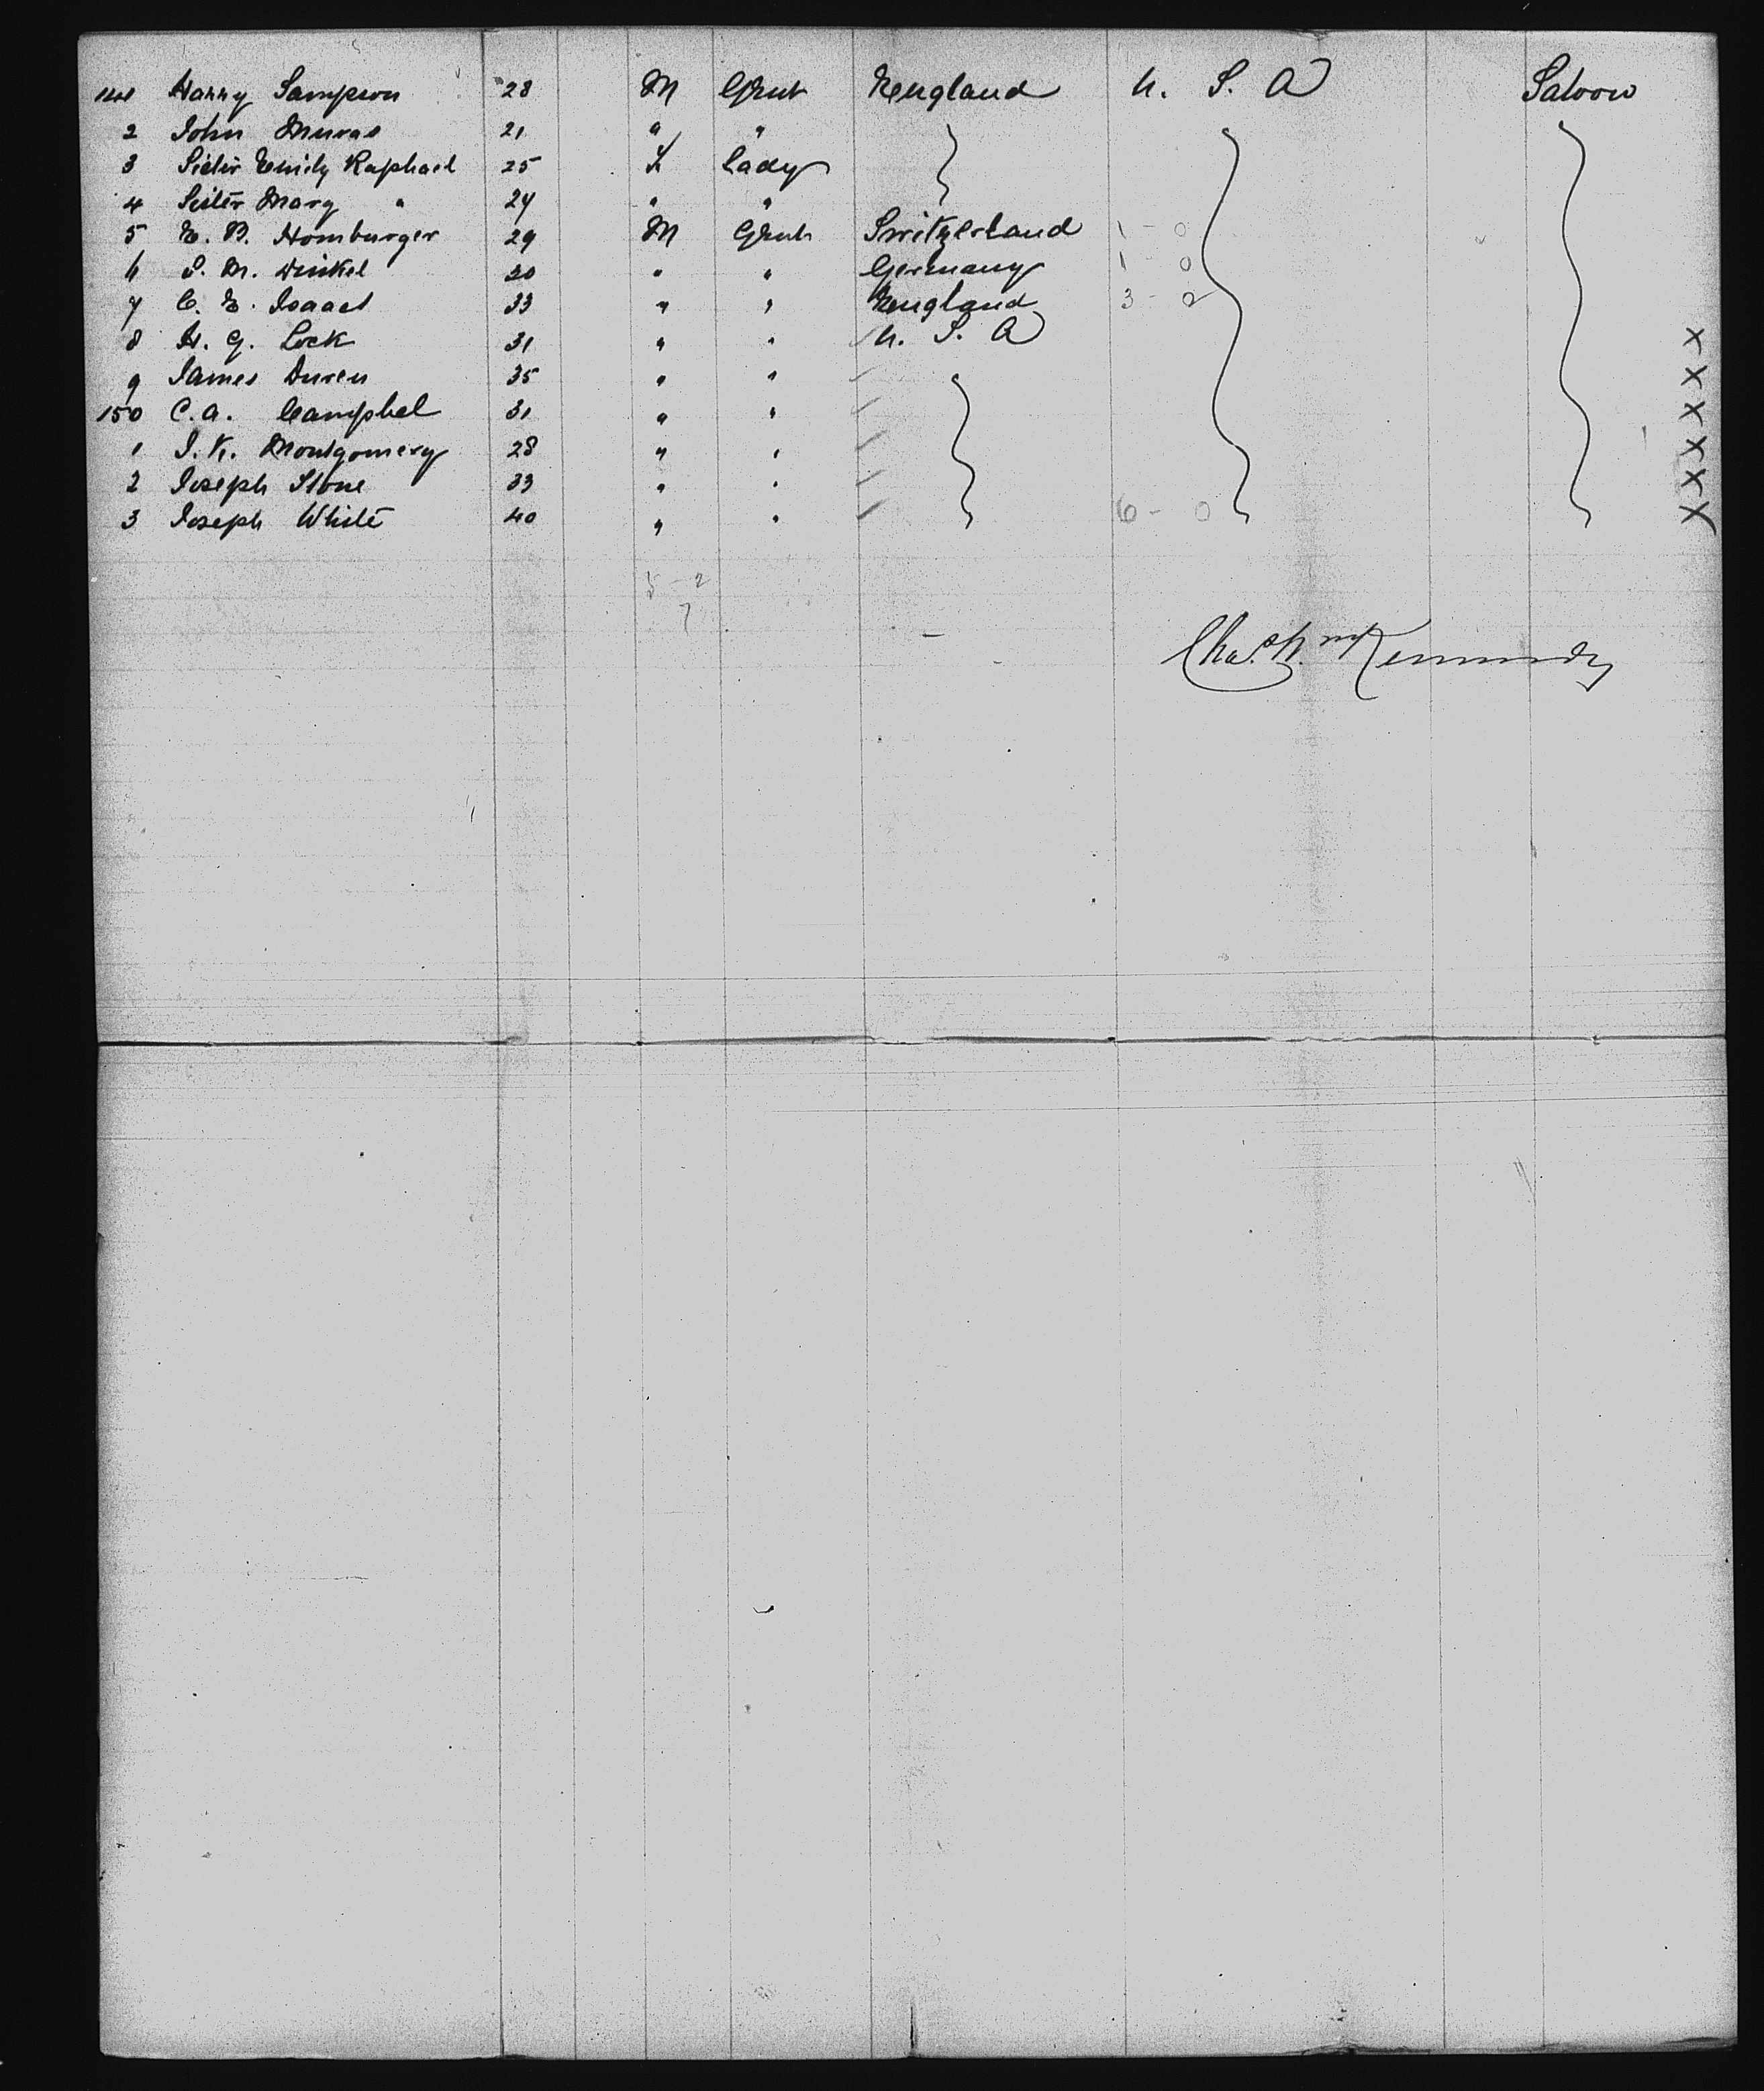 141 Harry Sampson 28 M Gent England U. S. A Saloon
2 John Muras 21 " "
3 Sister Emily Raphael 25 F Lady
4 Sister Mary " 24 " "
5 E. B. Homburger 29 M Gent Switzerland 1 - 0
6 S. M. Winkel 20 " " Germany 1 - 0
7 C. E. Isaacs 33 " " England 3 - 2
8 H. G. Lock 31 " " U. S. A X
9 James Duren 35 " " X
150 C. A. Camphel 31 " " X
1 J. K. Montgomery 28 " " X
2 Joseph Stone 33 " " X
3 Joseph White 40 " " 6 - 0 X
5 - 2
7
Chas. Kennedy